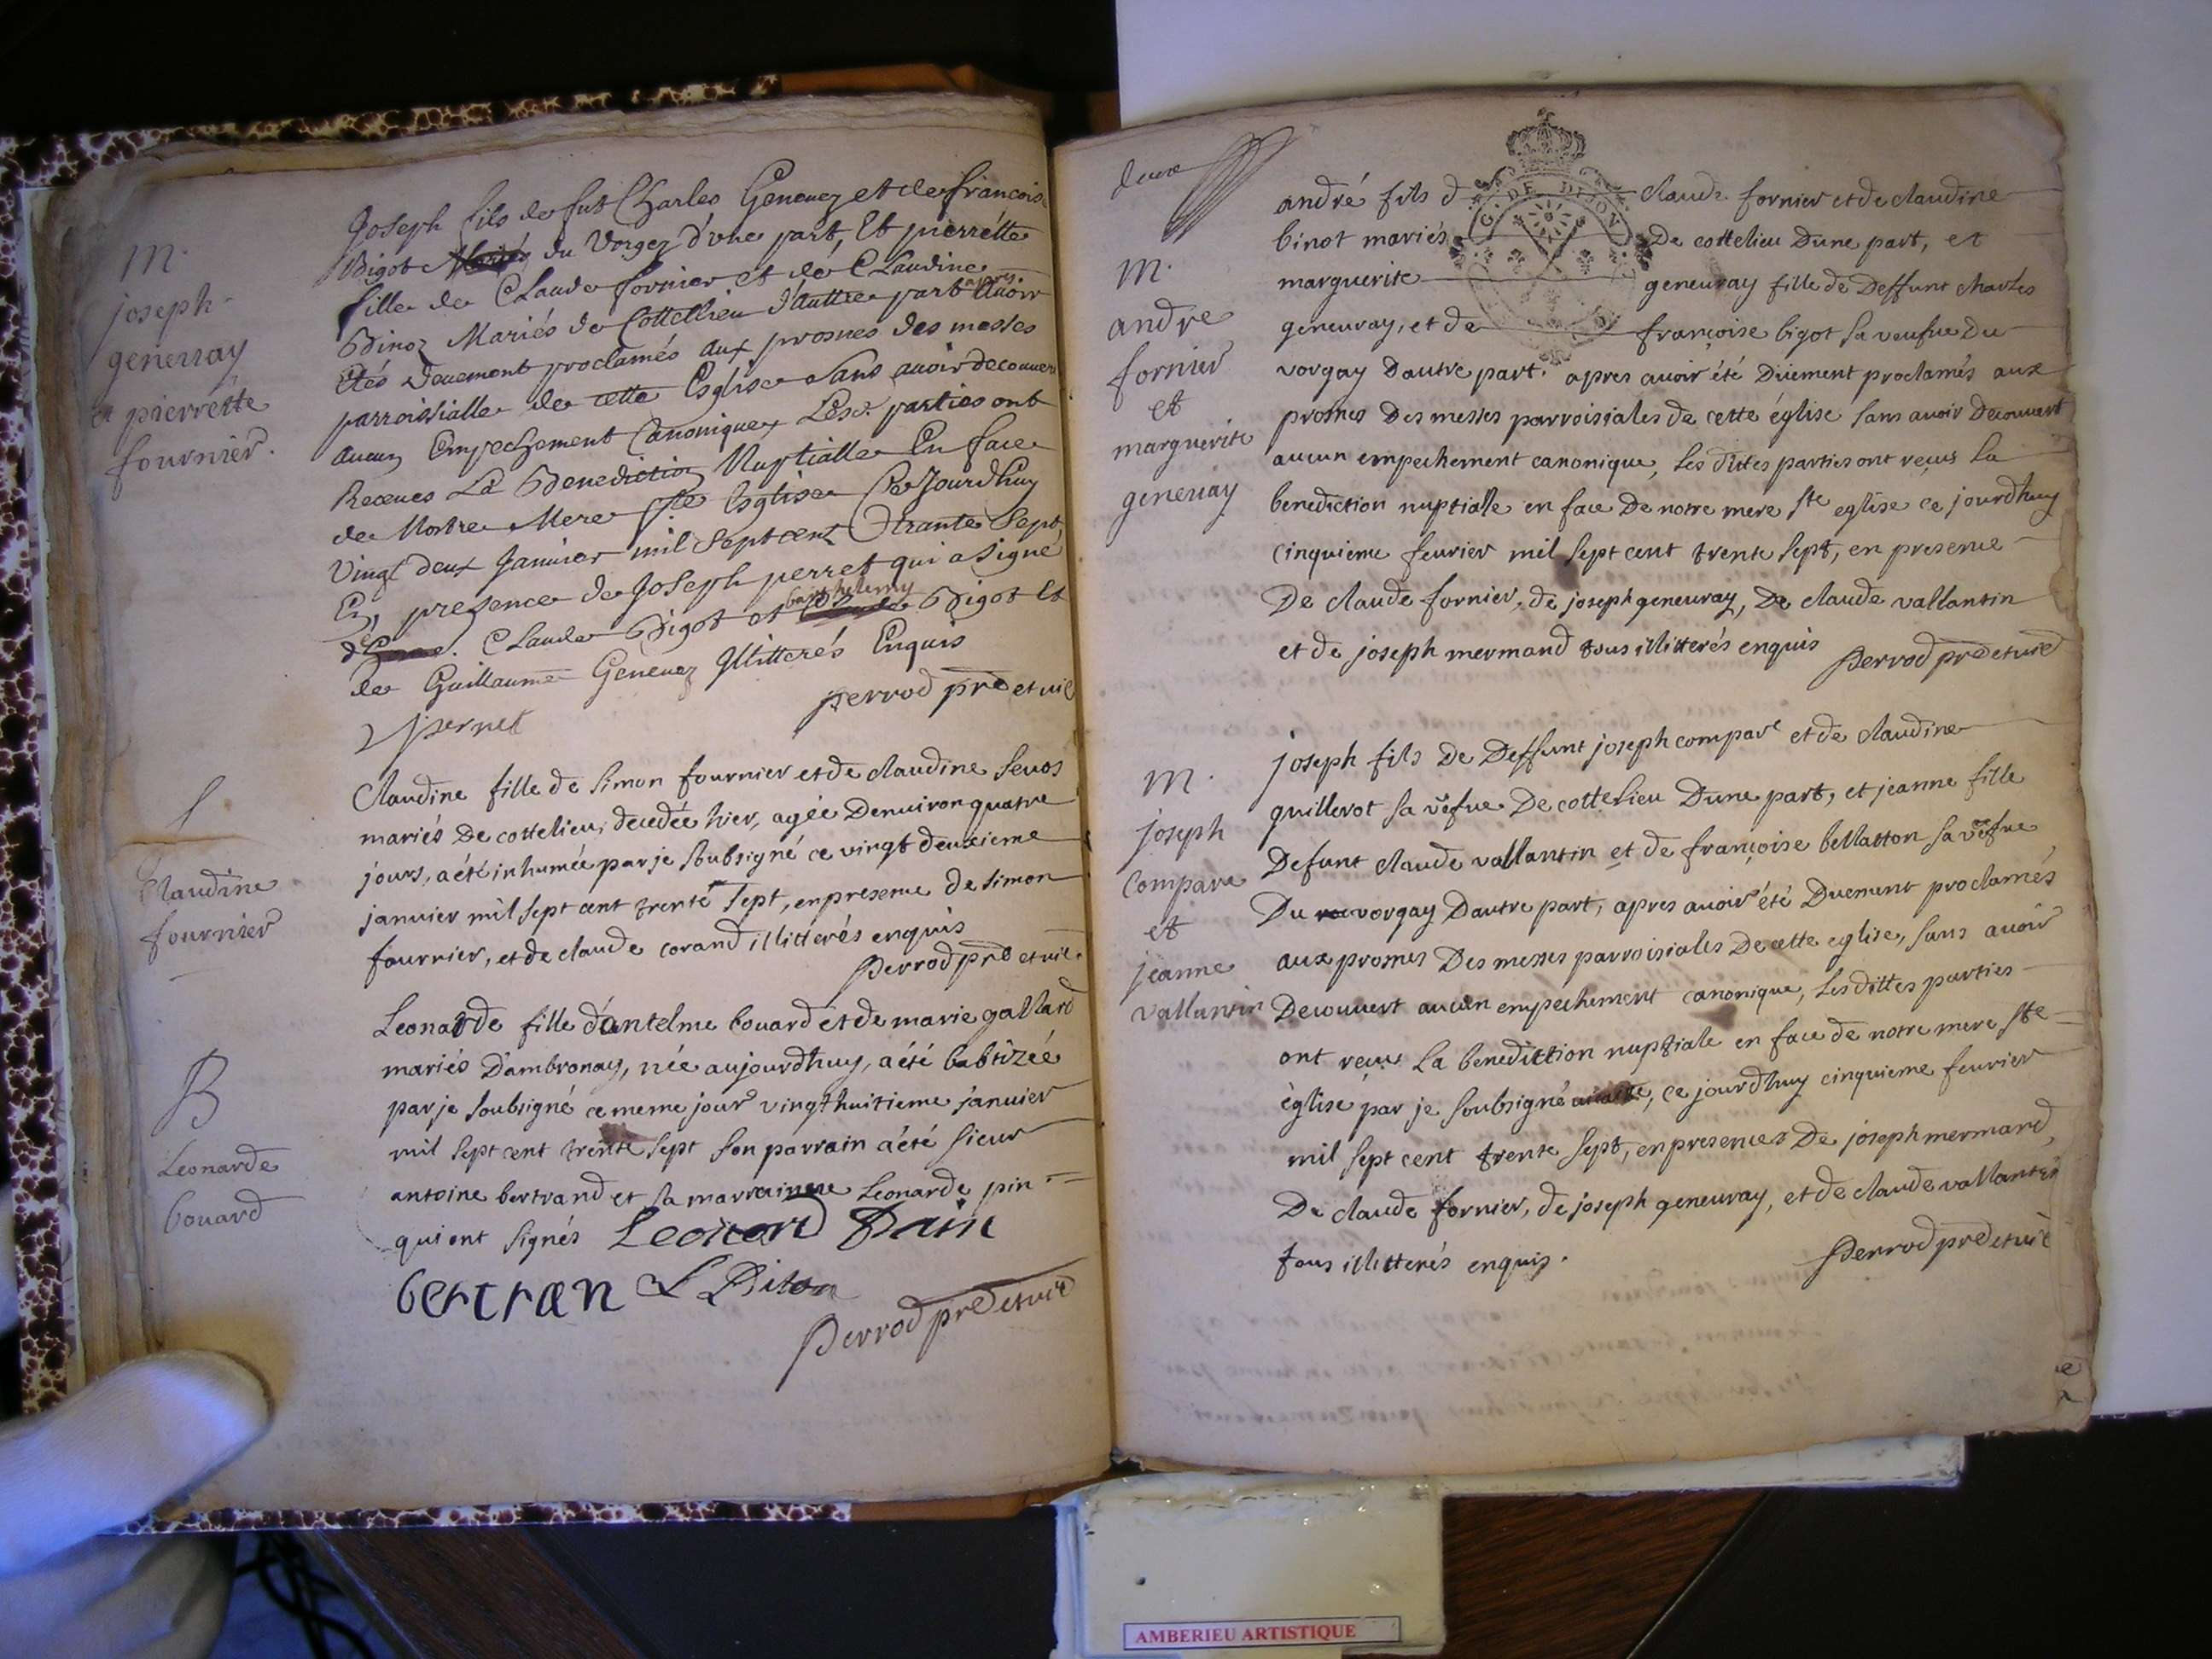 M.
joseph
geneuray
et pierrette
fournier.
Joseph fils de fut Charles Geneuez et de francoise
Bigot Mariés du Vorgez d'vne part, Et pierrétte
fille de Claude fornier et de Claudine
Binoz Mariés de Cottellieu d'auttre part apres Auoir
Etés Deuement proclamés aux prosnes des messes
parroissialle de cette Esglise sans auoir decouuert
Aucun Empechement Canonique, Lesd. parties ont
Receues La Benediction Nuptialle En face
de Nostre Mere Ste Esglise Ce Jourdhuy
Vingt deux Januier mil Sept cent Trante Sept
En presence de Joseph perret qui a signé
de Claude Bigot et barthelemy Bigot Et
de Guillaume Geneuez Illitterés Enquis
perrod pre et vic
J pernet
S
Claudine
fournier
Claudine fille de Simon fournier et de claudine seuos
mariés De cottelieu, decedée hier, agée Denuiron quatre
jours, a été inhumée par je soubsigné ce vingt deuxieme
januier mil sept cent trente sept, en presence de simon
fournier, et de claude corand illitterés enquis
Perrod pre et vic.
B
Leonarde
bouard
Leonarde fille d'antelme bouard et de marie gallard
mariés D'ambronay, née aujourdhuy, a été babtizée
par je soubsigné ce meme jour vingthuitieme januier
mil sept cent trente sept son parrain a été sieur
antoine bertrand et sa marraine Leonarde pin
qui ont signés Leonard Pain
bertran
Perrod pre et vic
deux
M.
andre
fornier
et
marguerite
geneuay
andré fils d claude fornier et de claudine
binot mariés De cottelieu Dune part, et
marguerite geneuray fille de Deffunt charles
geneuray, et de françoise bigot sa veufue Du
vorgay Dautre part. apres auoir été Duement proclamés aux
prosnes Des messes parroissiales de cette église sans auoir Decouuert
aucun empechement canonique, Les dittes parties ont reçus La
benediction nuptialle en face De notre mere ste eglise ce jourdhuy
cinquieme feurier mil sept cent trente sept, en presence
De claude fornier, de joseph geneuray, De claude vallantin
et de joseph mermand tous illitterés enquis
Perrod pre et vic
M.
joseph
Compare
et
jeanne
vallantin
joseph fils De Deffunt joseph compare et de claudine
guillerot sa vefue De cottelieu Dune part, et jeanne fille
Defunt claude vallantin et de françoise bellatton sa vefue
Du vorgay Dautre part, apres auoir été Duement proclamés
aux prosnes Des messes parroissiales De cette eglise, sans auoir
Decouuert aucun empechement canonique, Lesdittes parties
ont reçus La benediction nuptiale en face de notre mere ste
église par je soubsigné, ce jourdhuy cinquieme feurier
mil sept cent trente sept, en presences De joseph mermand,
De claude fornier, de joseph geneuray, et de claude vallantin
tous illitterés enquis.
Perrod pre et vic
C. DE DIJON
AMBERIEU ARTISTIQUE